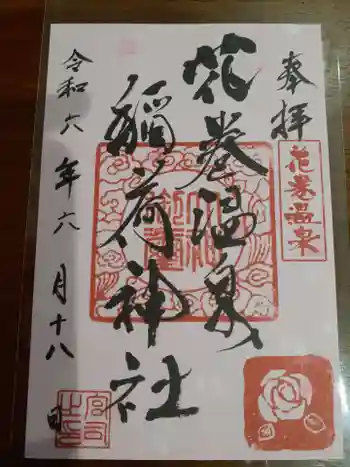 奉拝
花巻温泉
花巻温泉
稲荷神社
令和六年六月十八日
宮司
之印